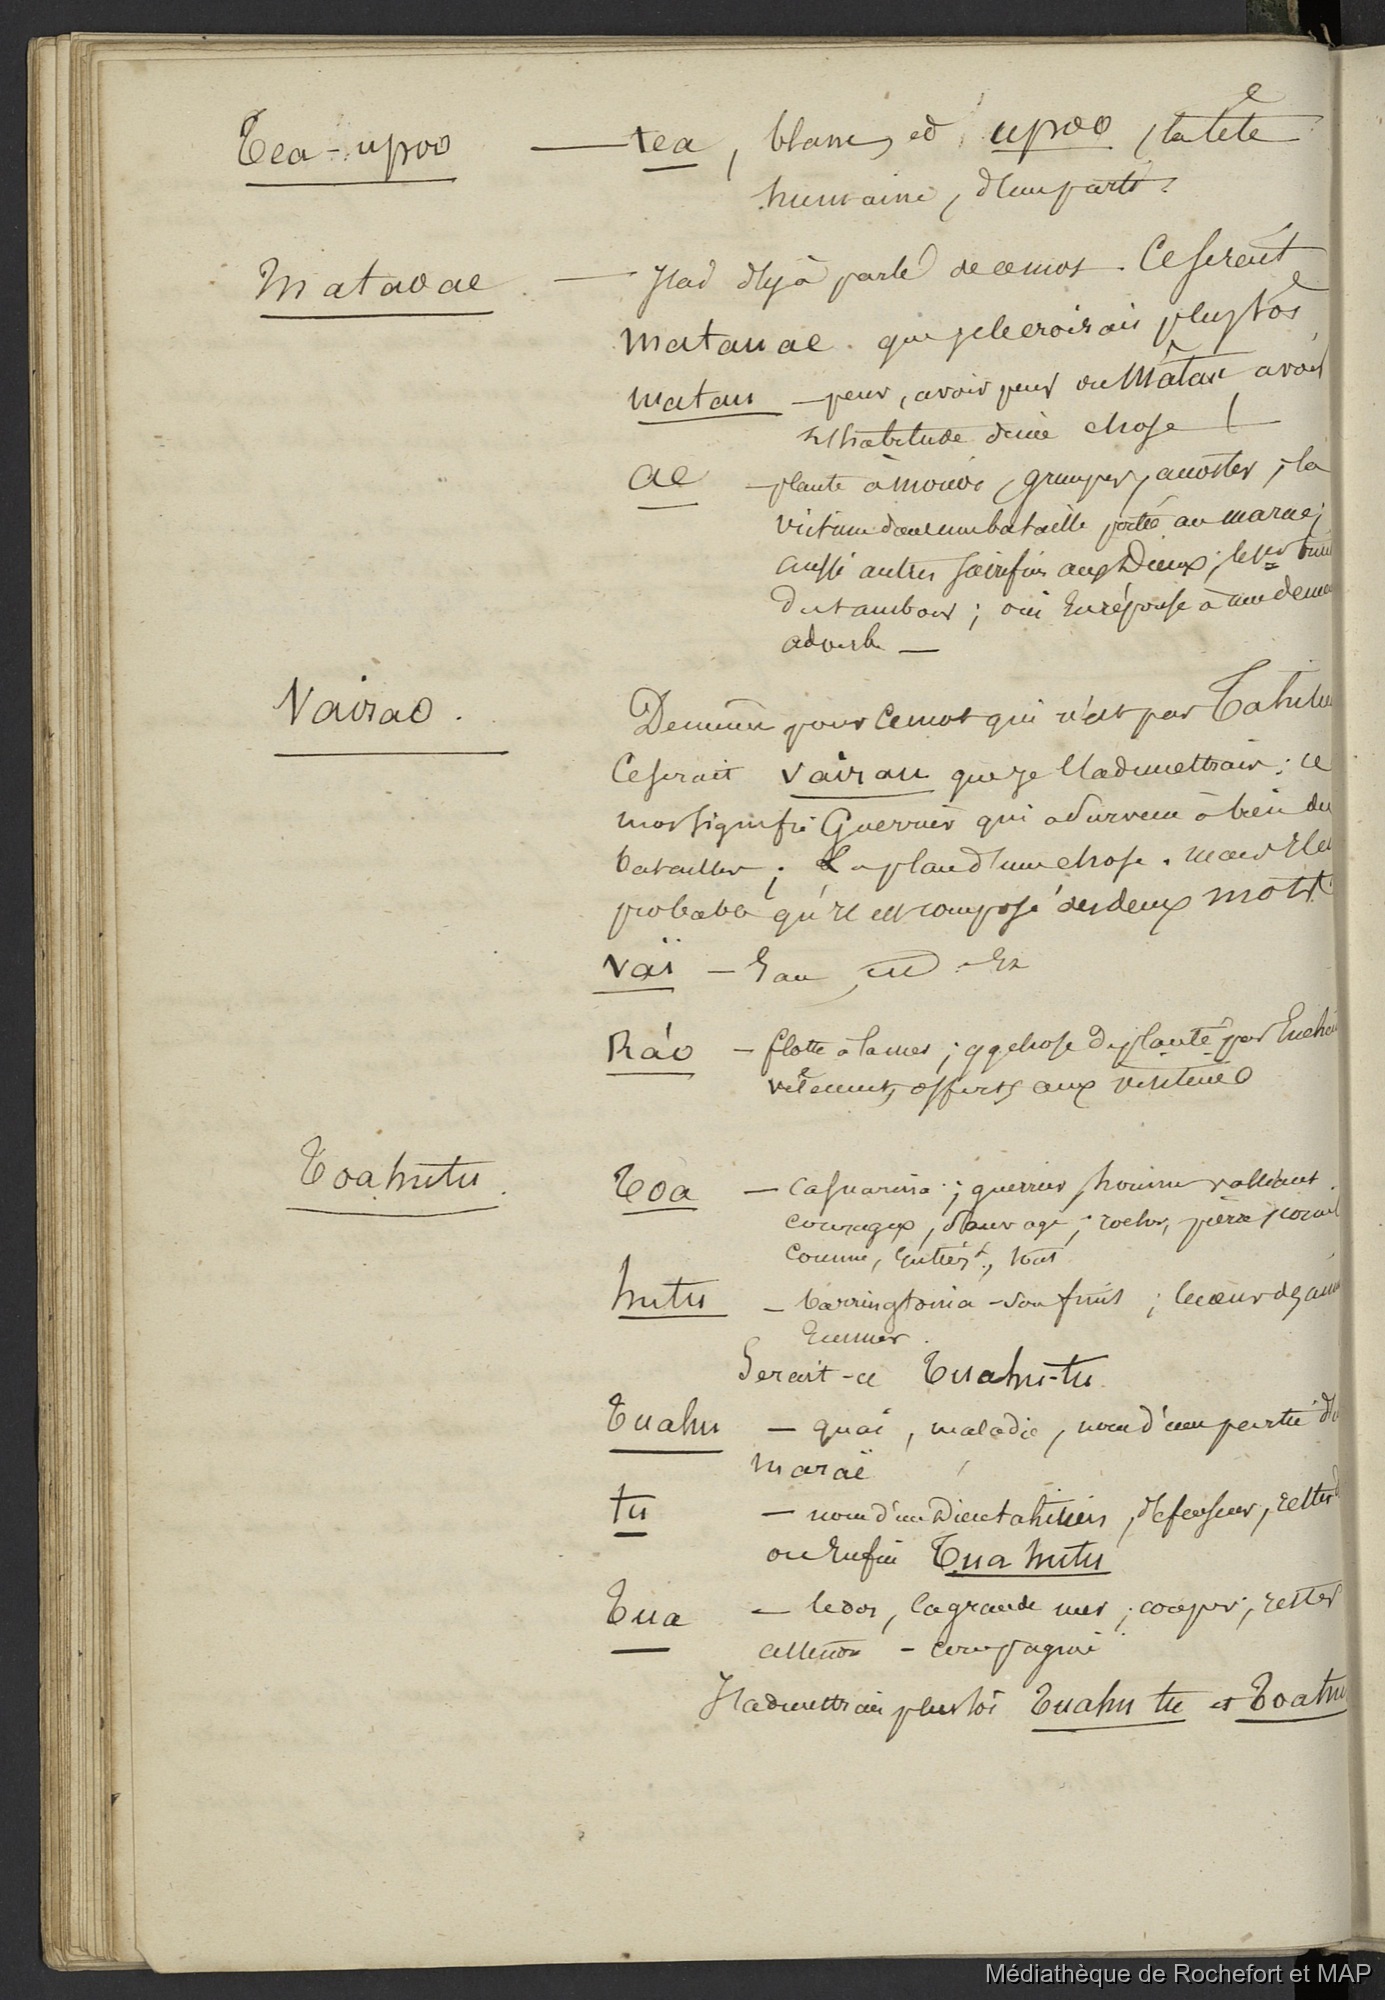 Tea-upoo — tea, blanc, et upoo, la tête
humaine, d'une part.
Mataoae — J'ai déjà parlé de ce mot. Ce serait
matauae. que je le croirais plustôt
matau — peur, avoir peur ou Mâtau avoir
l'habitude d'une chose
ae — plante à, grimper, accoster, la
victime dans une bataille portée au marae;
aussi autres sacrifices aux Dieux; le 1er
du tambour; oui En réponse à une
adverbe —
Vairao. De même pour ce mot qui n'est pas
Ce serait vairau que je l'admettrais; ce
mot signifie Guerrier qui a survécu à bien des
batailles; La plan d'une chose. mais Il est
probable qu'il est composé des deux mots
Vaï — Eau,
Ráo — flotte à la mer; qq chose déplanté par
vêtements offerts aux visiteurs
Toahutu. Toa — Casuarina; guerrier, homme vaillant.
courageux, sauvage; rocher, pierre, corail
comme, entiert, tout
hutu — barringtonia - son fruit; le cœur
Serait-ce Tuahu-tu
Tuahu — quai, maladie, nom d'une partie du
maraë
tu — nom d'un Dieu tahitien, défenseur, rester
ou Enfin Tua hutu
Tua — le dos, la grande mer; couper, rester
- compagnie
J'admettrais plustôt Tuahu tu et